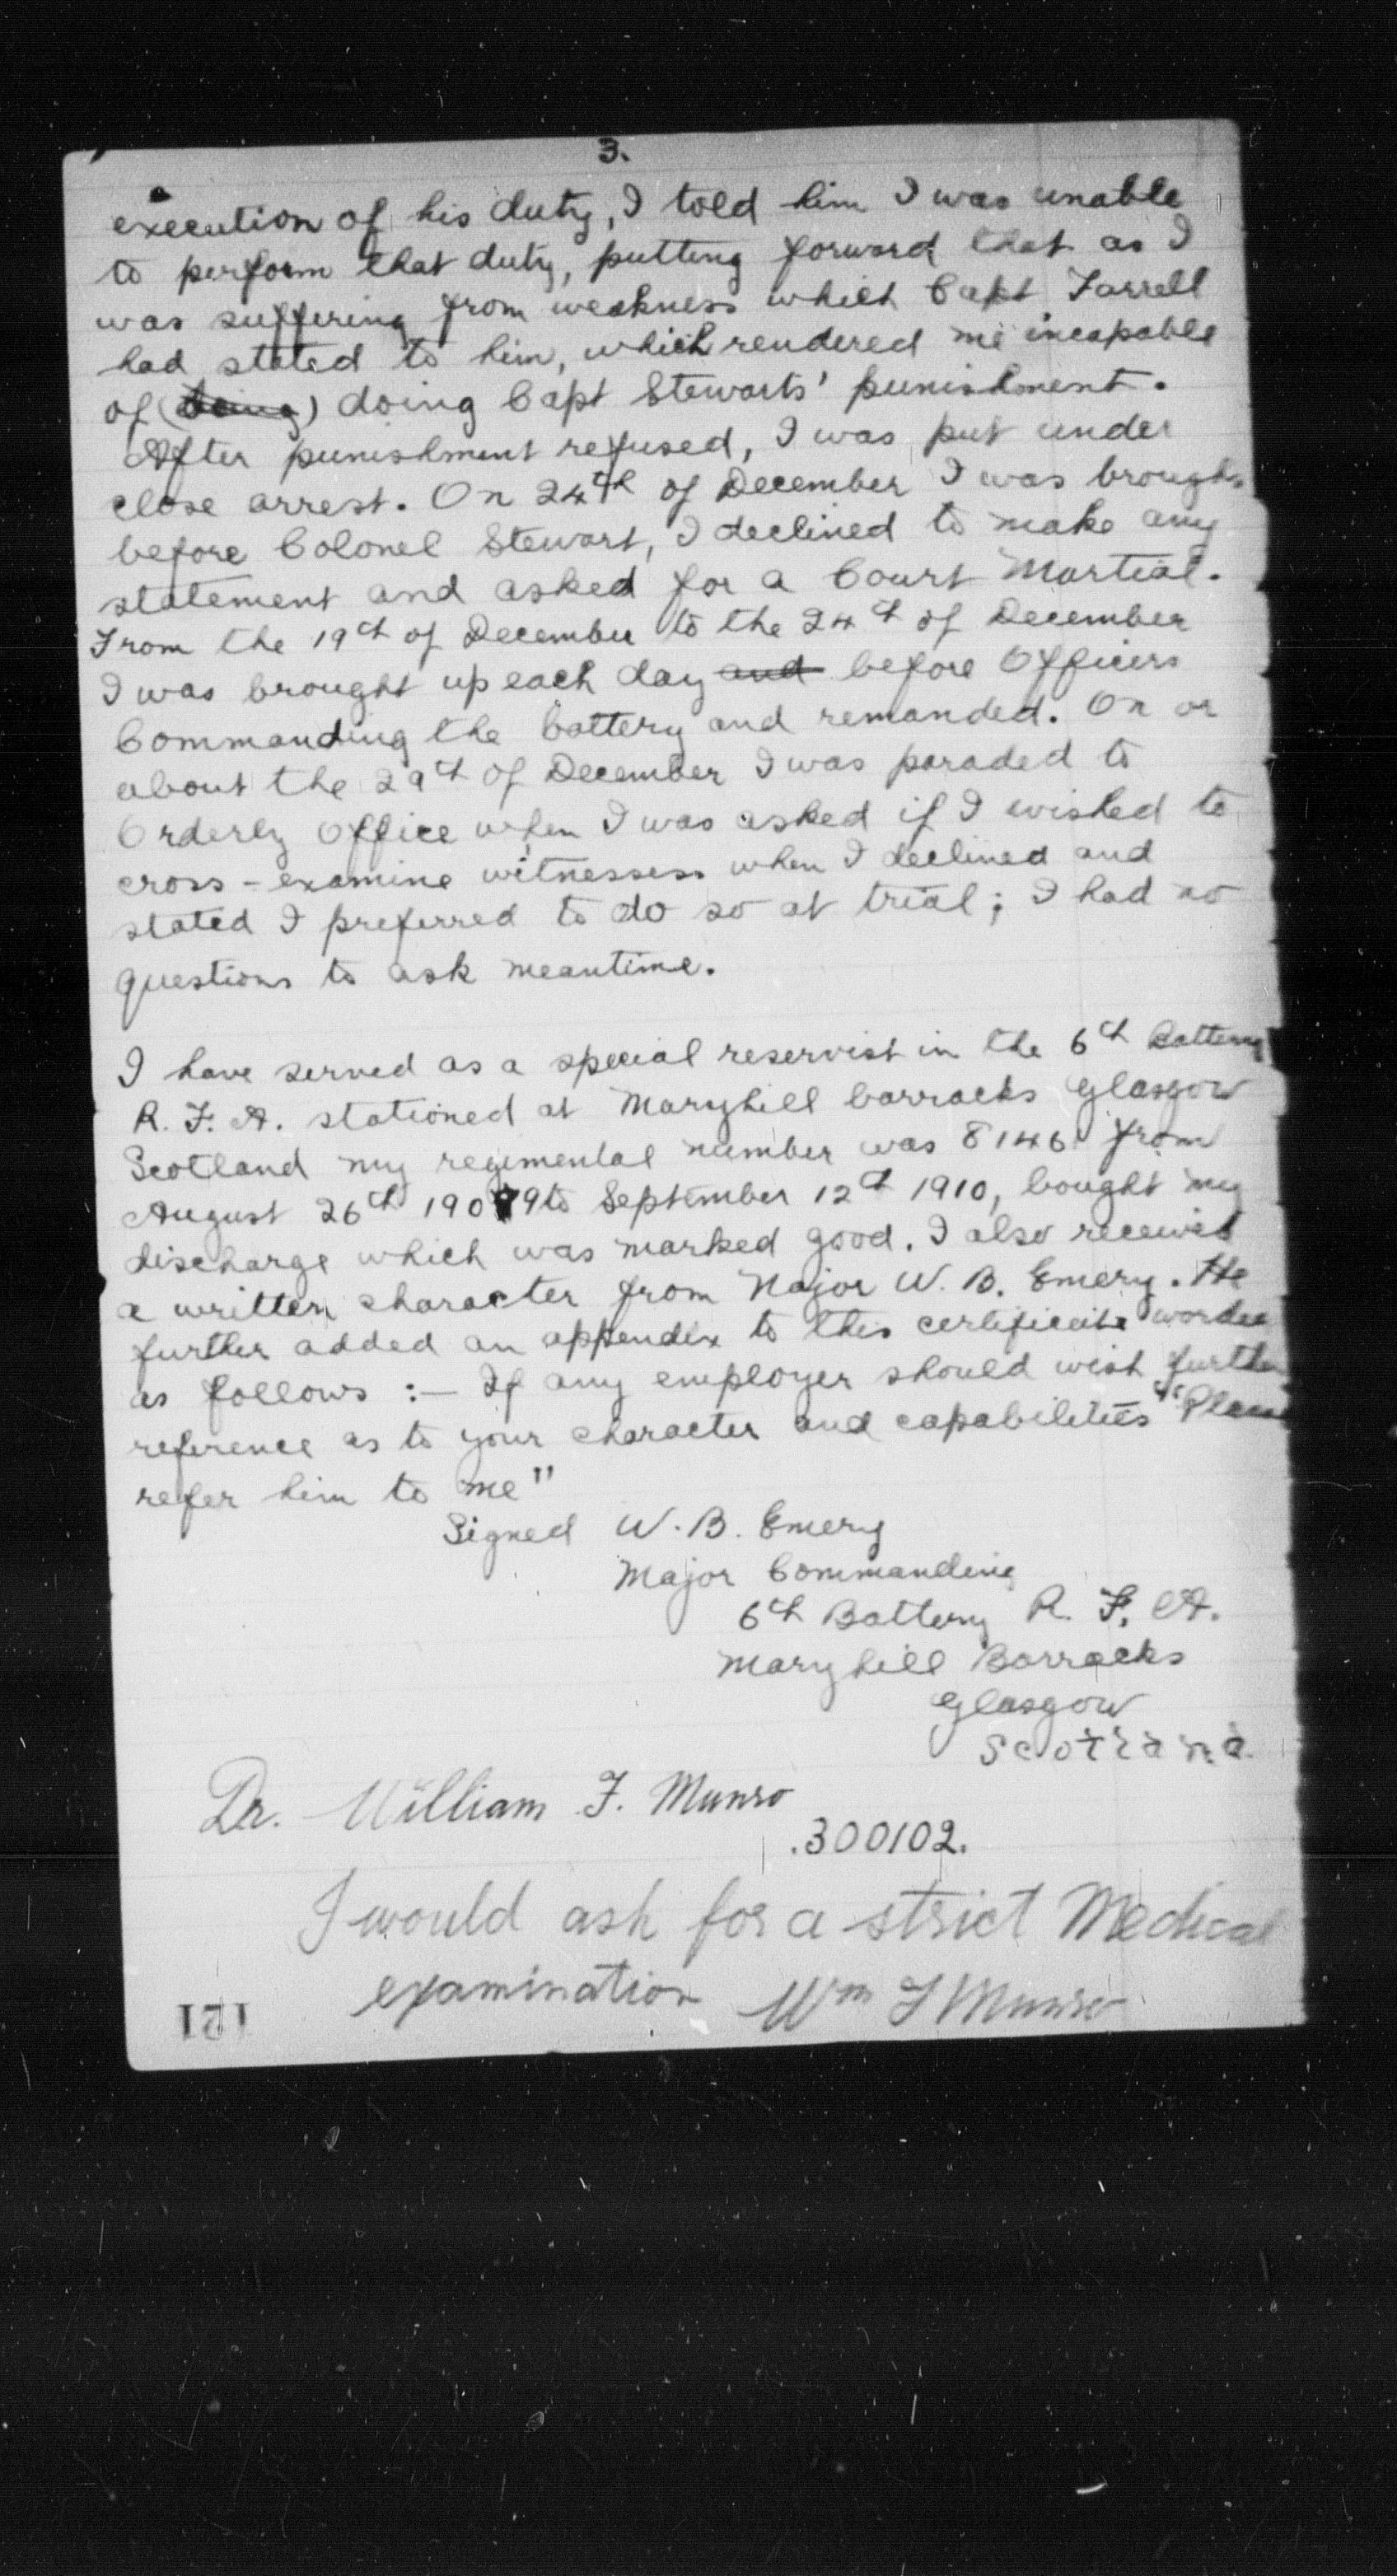 3.
execution of his duty, I told him I was unable
to perform that duty, putting forward that as I
was suffering from weakness which Capt Farrell
had stated to him, which rendered me incapable
of (doing) doing Capt Stewarts' punishment.
After punishment refused, I was put under
close arrest. On 24th of December I was brought
before Colonel Stewart, I declined to make any
statement and asked for a Court Martial.
From the 19th of December to the 24th of December
I was brought up each day and before Officers
Commanding the battery and remanded. On or
about the 29th of December I was paraded to
Orderly Office when I was asked if I wished to
cross-examine witnessess when I declined and
stated I preferred to do so at trial; I had no
questions to ask meantime.
I have served as a special reservist in the 6th Battery
R. F. A. stationed at Maryhill barracks Glasgow
Scotland my regimental number was 8146 from
August 26th 1909 to September 12th 1910, bought my
discharge which was marked good. I also received
a written character from Major W. B. Emery. He
further added an appendix to this certificate worded
as follows :— If any employer should wish further
reference as to your character and capabilities "Please
refer him to me"
Signed W. B. Emery
Major Commanding
6th Battery R. F. A.
Maryhill Barracks
Glasgow
Scotland
Dr. William F. Munro
300102.
I would ask for a strict Medical
examination Wm F Munro
121